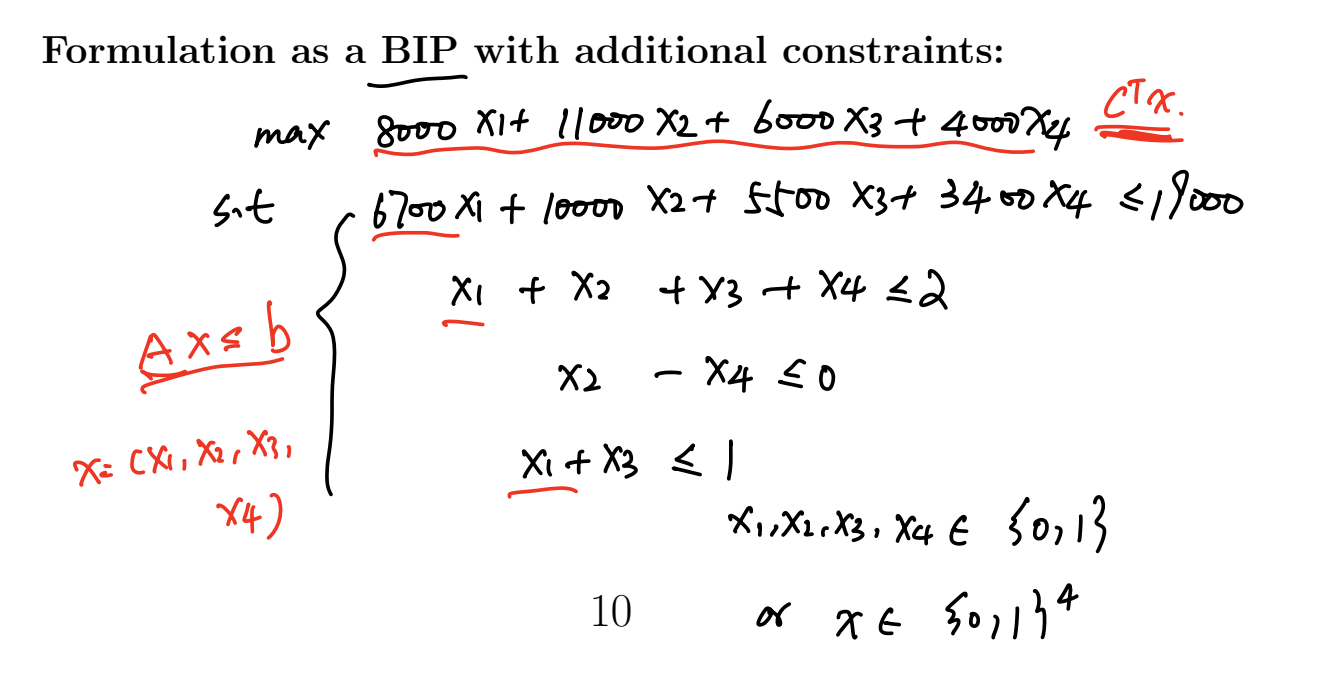 Formulation as a BIP with additional constraints:
max 8000 x1 + 11000 x2 + 6000 x3 + 4000 x4 Cᵀx.
s.t 6700 x1 + 10000 x2 + 5500 x3 + 3400 x4 ≤ 19000
x1 + x2 + x3 + x4 ≤ 2
A x ≤ b
x2 - x4 ≤ 0
x1 + x3 ≤ 1
x = (x1, x2, x3,
x4)
x1, x2, x3, x4 ∈ {0,1}
10
or x ∈ {0,1}⁴